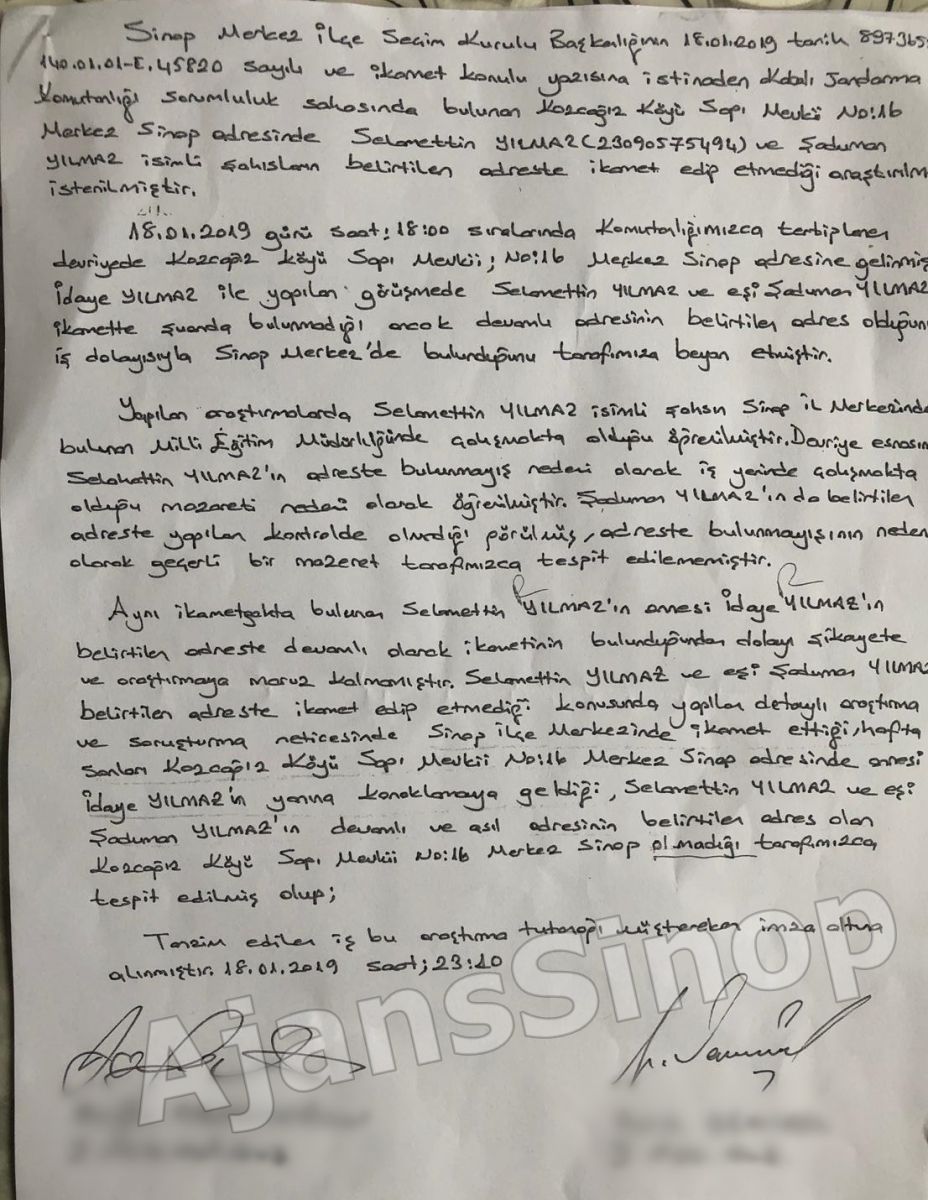 Sinop Merkez İlçe Seçim Kurulu Başkanlığının 18.01.2019 tarih 897365
140.01.01-E.45820 sayılı ve ikamet konulu yazısına istinaden Kabalı Jandarma
Komutanlığı sorumluluk sahasında bulunan Kozcağız Köyü Sapı Mevkii No:16
Merkez Sinop adresinde Selamettin YILMAZ(23090575494) ve Şaduman
YILMAZ isimli şahısların belirtilen adreste ikamet edip etmediği araştırılm
istenilmiştir.
18.01.2019 günü saat: 18:00 sıralarında Komutanlığımızca tertiplenen
devriyede Kozcağız Köyü Sapı Mevkii; No:16 Merkez Sinop adresine gelinmiş
İdaye YILMAZ ile yapılan görüşmede Selamettin YILMAZ ve eşi Şaduman YILMAZ
ikamette şuanda bulunmadığı ancak devamlı adresinin belirtilen adres olduğunu
iş dolayısıyla Sinop Merkez'de bulunduğunu tarafımıza beyan etmiştir.
Yapılan araştırmalarda Selamettin YILMAZ isimli şahsın Sinop İl Merkezinde
bulunan Milli Eğitim Müdürlüğünde çalışmakta olduğu öğrenilmiştir. Devriye esnasın
Selahattin YILMAZ'ın adreste bulunmayış nedeni olarak iş yerinde çalışmakta
olduğu mazareti nedeni olarak öğrenilmiştir. Şaduman YILMAZ'ın da belirtilen
adreste yapılan kontrolde olmadığı görülmüş, adreste bulunmayışının neden
olarak geçerli bir mazeret tarafımızca tespit edilememiştir.
Aynı ikametgahta bulunan Selamettin YILMAZ'ın annesi İdaye YILMAZ'ın
belirtilen adreste devamlı olarak ikametinin bulunduğundan dolayı şikayete
ve araştırmaya maruz kalmamıştır. Selamettin YILMAZ ve eşi Şaduman YILMAZ
belirtilen adreste ikamet edip etmediği konusunda yapılan detaylı araştırma
ve soruşturma neticesinde Sinop ilçe Merkezinde ikamet ettiği, hafta
sonları Kozcağız Köyü Sapı Mevkii No:16 Merkez Sinop adresinde annesi
İdaye YILMAZ'ın yanına konaklamaya geldiği, Selamettin YILMAZ ve eşi
Şaduman YILMAZ'ın devamlı ve asıl adresinin belirtilen adres olan
Kozcağız Köyü Sapı Mevkii No:16 Merkez Sinop olmadığı tarafımızca
tespit edilmiş olup;
Tanzim edilen iş bu araştırma tutanağı müştereken imza altına
alınmıştır. 18.01.2019 saat; 23:10
AjansSinop